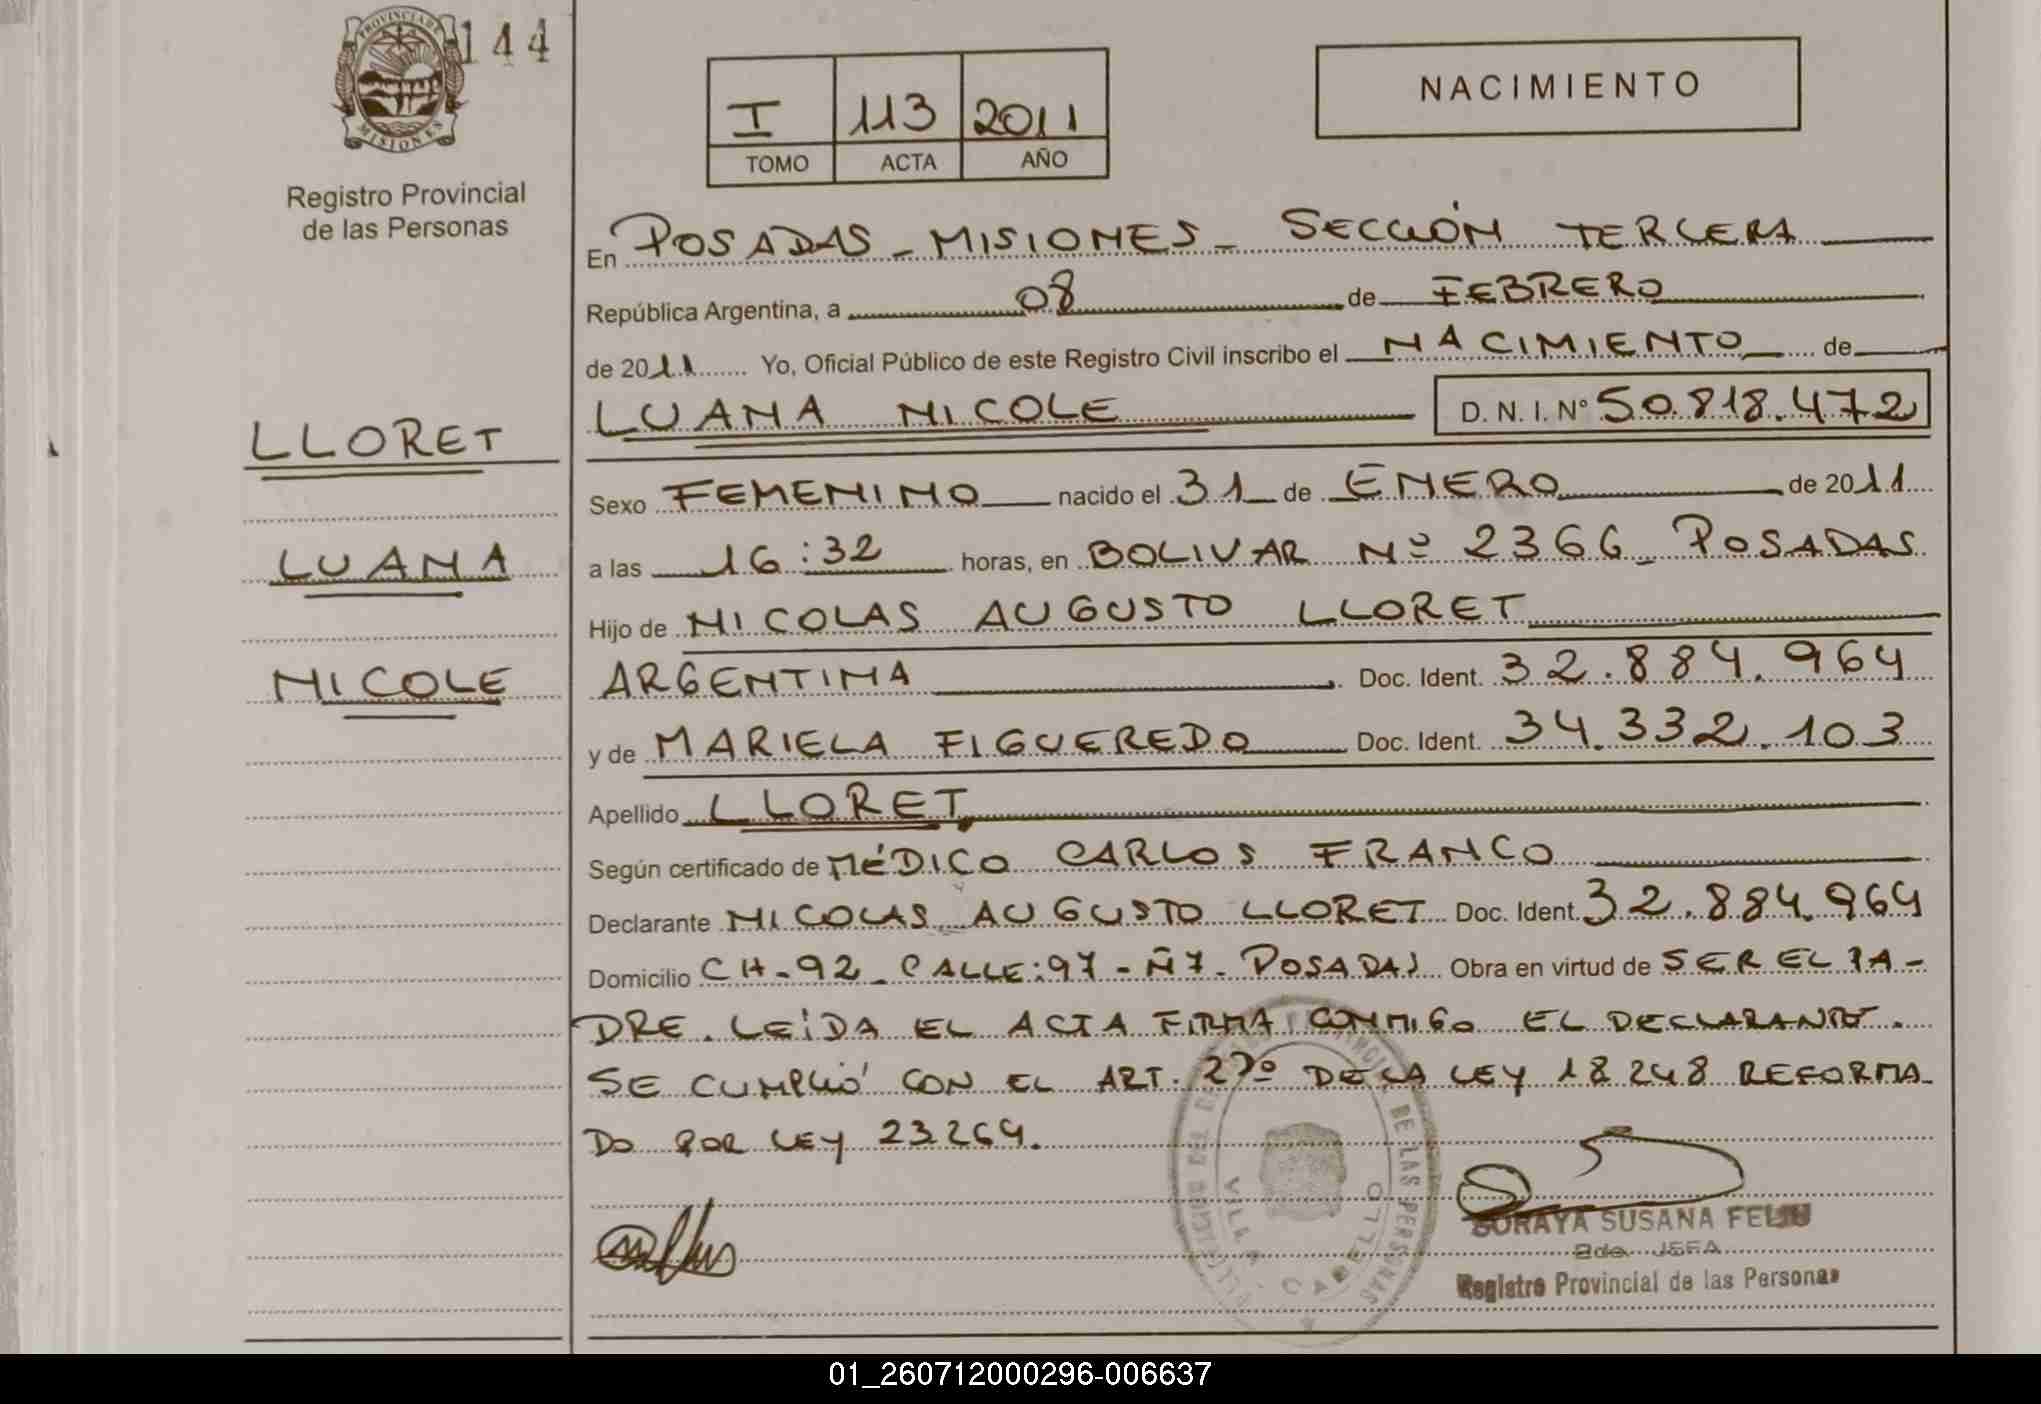 PROVINCIA DE
MISIONES
144
Registro Provincial
de las Personas
I 113 2011
TOMO ACTA AÑO
NACIMIENTO
En POSADAS - MISIONES - SECCIÓN TERCERA
República Argentina, a 08 de FEBRERO
de 2011 Yo, Oficial Público de este Registro Civil inscribo el NACIMIENTO de
LUANA NICOLE D. N. I. Nº 50.818.472
LLORET
LUANA
NICOLE
Sexo FEMENINO nacido el 31 de ENERO de 2011
a las 16:32 horas, en BOLIVAR Nº 2366 - POSADAS
Hijo de NICOLAS AUGUSTO LLORET
ARGENTINA Doc. Ident. 32.884.964
y de MARIELA FIGUEREDO Doc. Ident. 34.332.103
Apellido LLORET
Según certificado de MÉDICO CARLOS FRANCO
Declarante NICOLAS AUGUSTO LLORET Doc. Ident. 32.884.964
Domicilio CH-92 - CALLE:97 - Nº7 - POSADAS Obra en virtud de SER EL PA-
DRE. LEÍDA EL ACTA FIRMA CONMIGO EL DECLARANTE.
SE CUMPLIÓ CON EL ART. 27º DE LA LEY 18248 REFORMA
DO POR LEY 23264.
PROVINCIAL DE LAS PERSONAS
VILLA CABELLO
SORAYA SUSANA FELIU
2da JEFA
Registro Provincial de las Personas
01_260712000296-006637